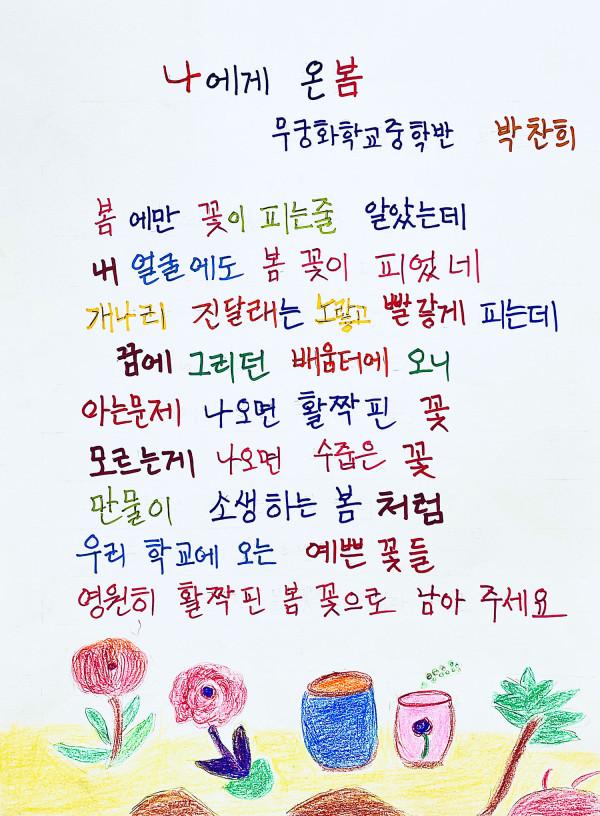 나에게 온봄
무궁화학교중학반 박찬희
봄 에만 꽃이 피는줄 알았는데
내 얼굴에도 봄 꽃이 피었네
개나리 진달래는 노랗고 빨갛게 피는데
꿈에 그리던 배움터에 오니
아는문제 나오면 활짝 핀 꽃
모르는게 나오면 수줍은 꽃
만물이 소생하는 봄 처럼
우리 학교에 오는 예쁜 꽃들
영원히 활짝핀 봄 꽃으로 남아 주세요